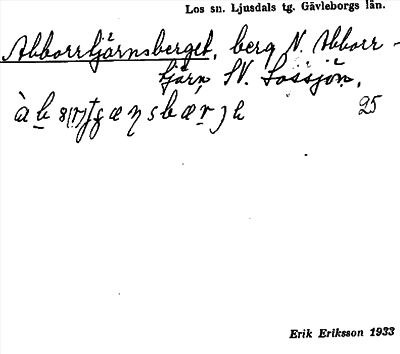 Los sn. Ljusdals tg. Gävleborgs län.
Abborrtjärnsberget, berg N. Abborr-
tjärn SV. Lossjön.
25
Erik Eriksson 1933